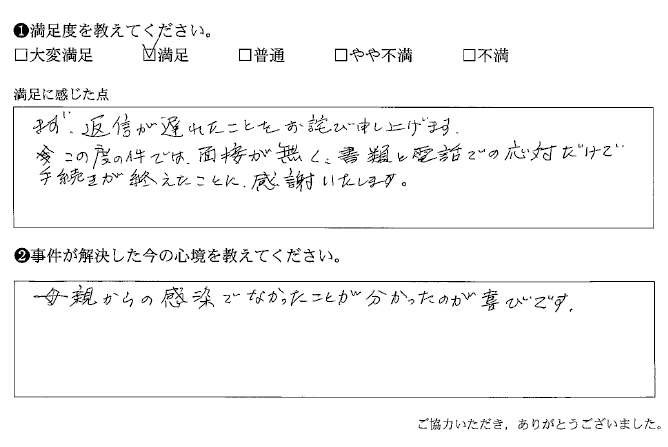 ❶満足度を教えてください。
□大変満足 ☑満足 □普通 □やや不満 □不満
満足に感じた点
まず、返信が遅れたことをお詫び申し上げます。
この度の件では、面接が無く、書類と電話での応対だけで
手続きが終えたことに、感謝いたします。
❷事件が解決した今の心境を教えてください。
母親からの感染でなかったことが分かったのが喜びです。
ご協力いただき，ありがとうございました。